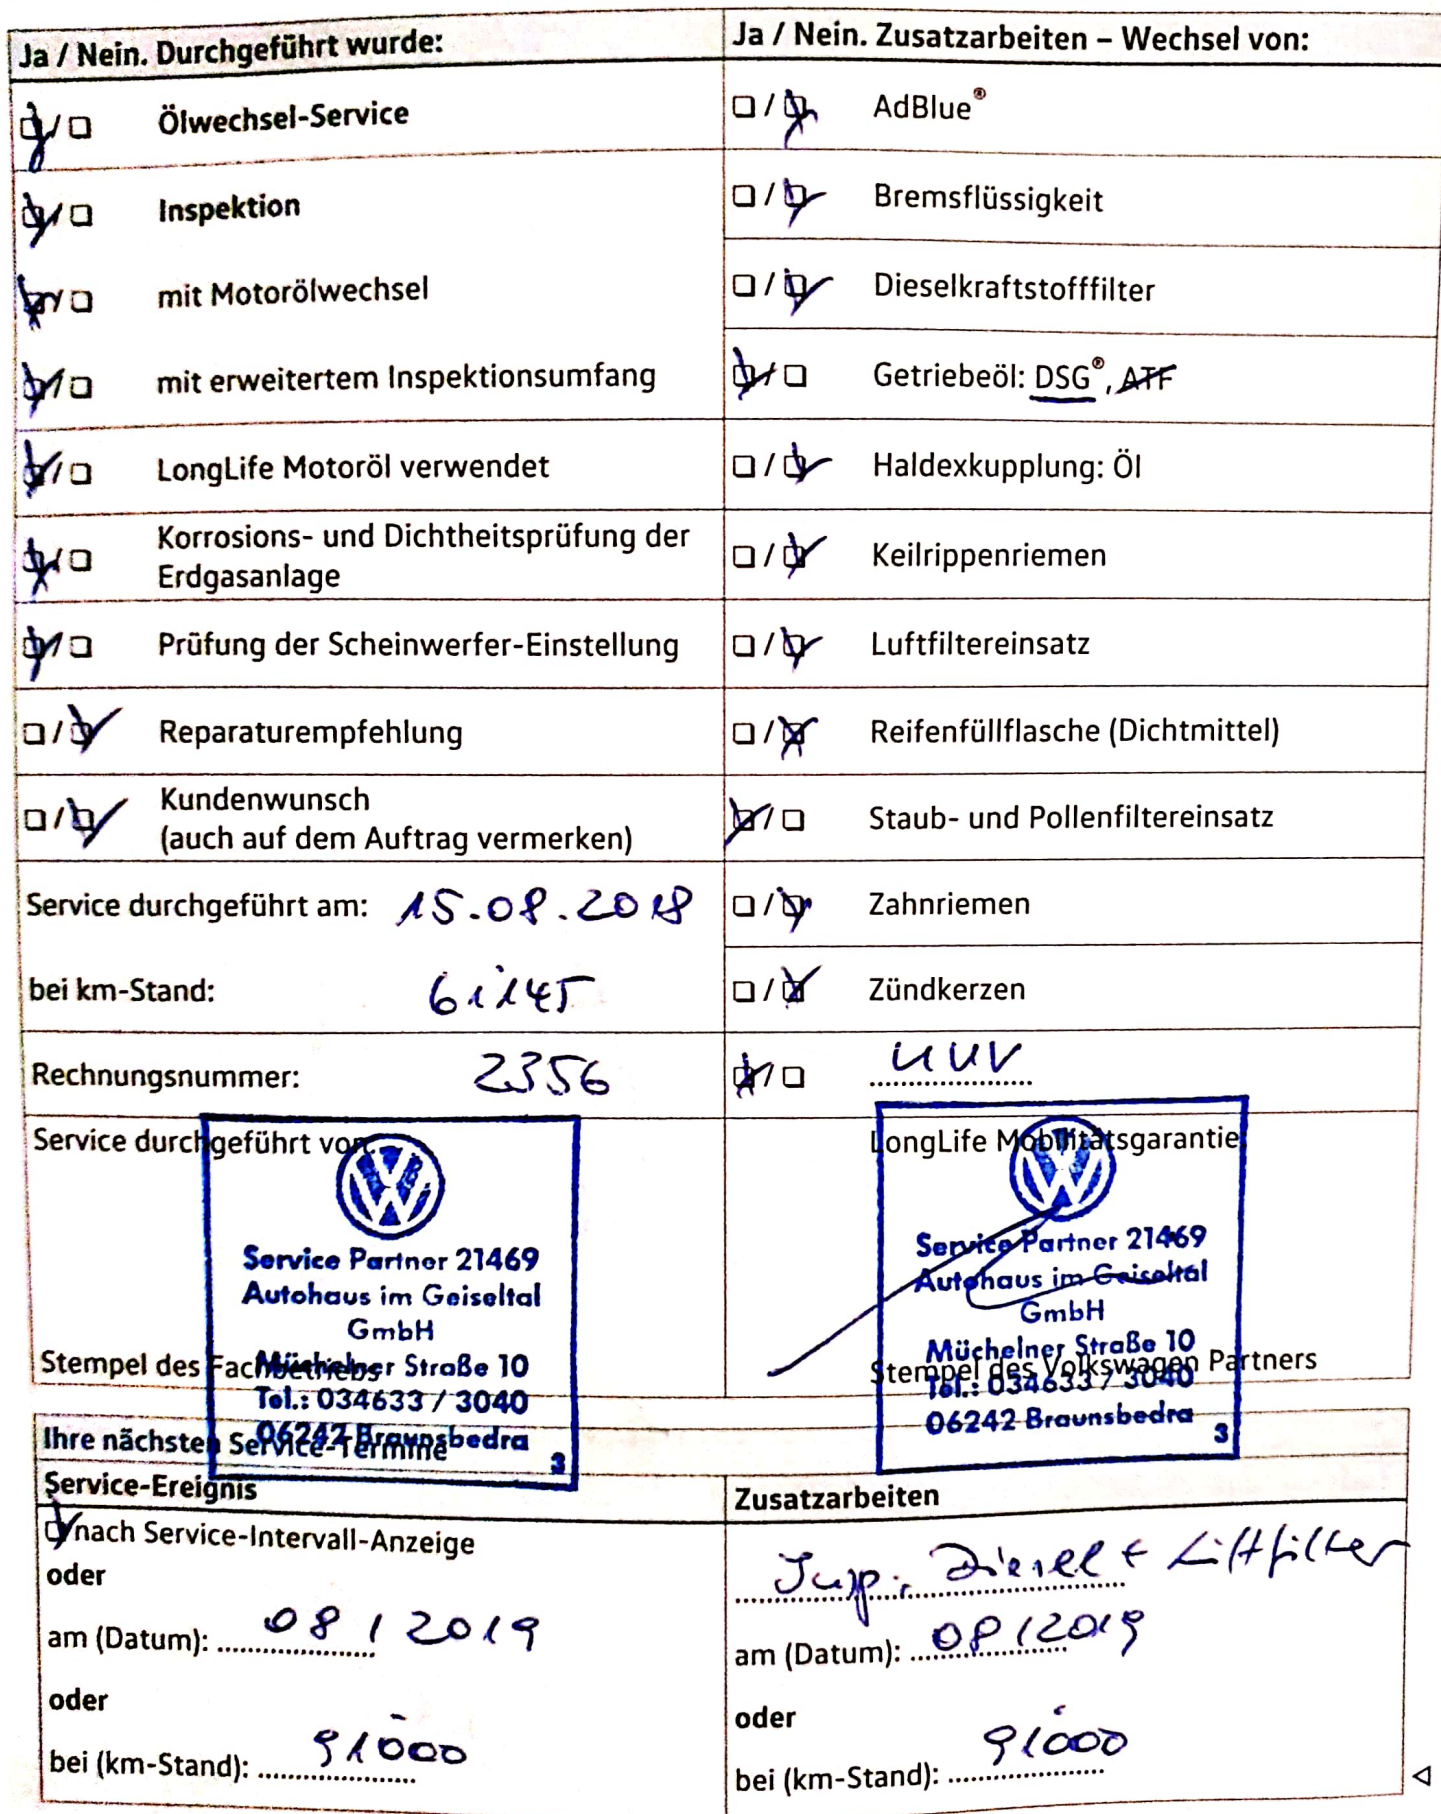 Ja / Nein. Durchgeführt wurde:
☑ / ☐ Ölwechsel-Service
☑ / ☐ Inspektion
☑ / ☐ mit Motorölwechsel
☑ / ☐ mit erweitertem Inspektionsumfang
☑ / ☐ LongLife Motoröl verwendet
☑ / ☐ Korrosions- und Dichtheitsprüfung der
Erdgasanlage
☑ / ☐ Prüfung der Scheinwerfer-Einstellung
☐ / ☑ Reparaturempfehlung
☐ / ☑ Kundenwunsch
(auch auf dem Auftrag vermerken)
Service durchgeführt am: 15.08.2018
bei km-Stand: 61145
Rechnungsnummer: 2356
Service durchgeführt von:
Service Partner 21469
Autohaus im Geiseltal
GmbH
Müchelner Straße 10
Stempel des Fachbetriebs
Tel.: 034633 / 3040
06242 Braunsbedra
3
Ja / Nein. Zusatzarbeiten – Wechsel von:
☐ / ☑ AdBlue®
☐ / ☑ Bremsflüssigkeit
☐ / ☑ Dieselkraftstofffilter
☑ / ☐ Getriebeöl: DSG®, ATF
☐ / ☑ Haldexkupplung: Öl
☐ / ☑ Keilrippenriemen
☐ / ☑ Luftfiltereinsatz
☐ / ☑ Reifenfüllflasche (Dichtmittel)
☑ / ☐ Staub- und Pollenfiltereinsatz
☐ / ☑ Zahnriemen
☐ / ☑ Zündkerzen
☑ / ☐
LongLife Mobilitätsgarantie
Service Partner 21469
Autohaus im Geiseltal
GmbH
Müchelner Straße 10
Stempel des Volkswagen Partners
Tel.: 034633 / 3040
06242 Braunsbedra
3
Ihre nächsten Service-Termine
Service-Ereignis
☑ nach Service-Intervall-Anzeige
oder
am (Datum): 08/2019
oder
bei (km-Stand): 91000
Zusatzarbeiten
Insp., Diesel + Luftfilter
am (Datum): 08/2019
oder
bei (km-Stand): 91000